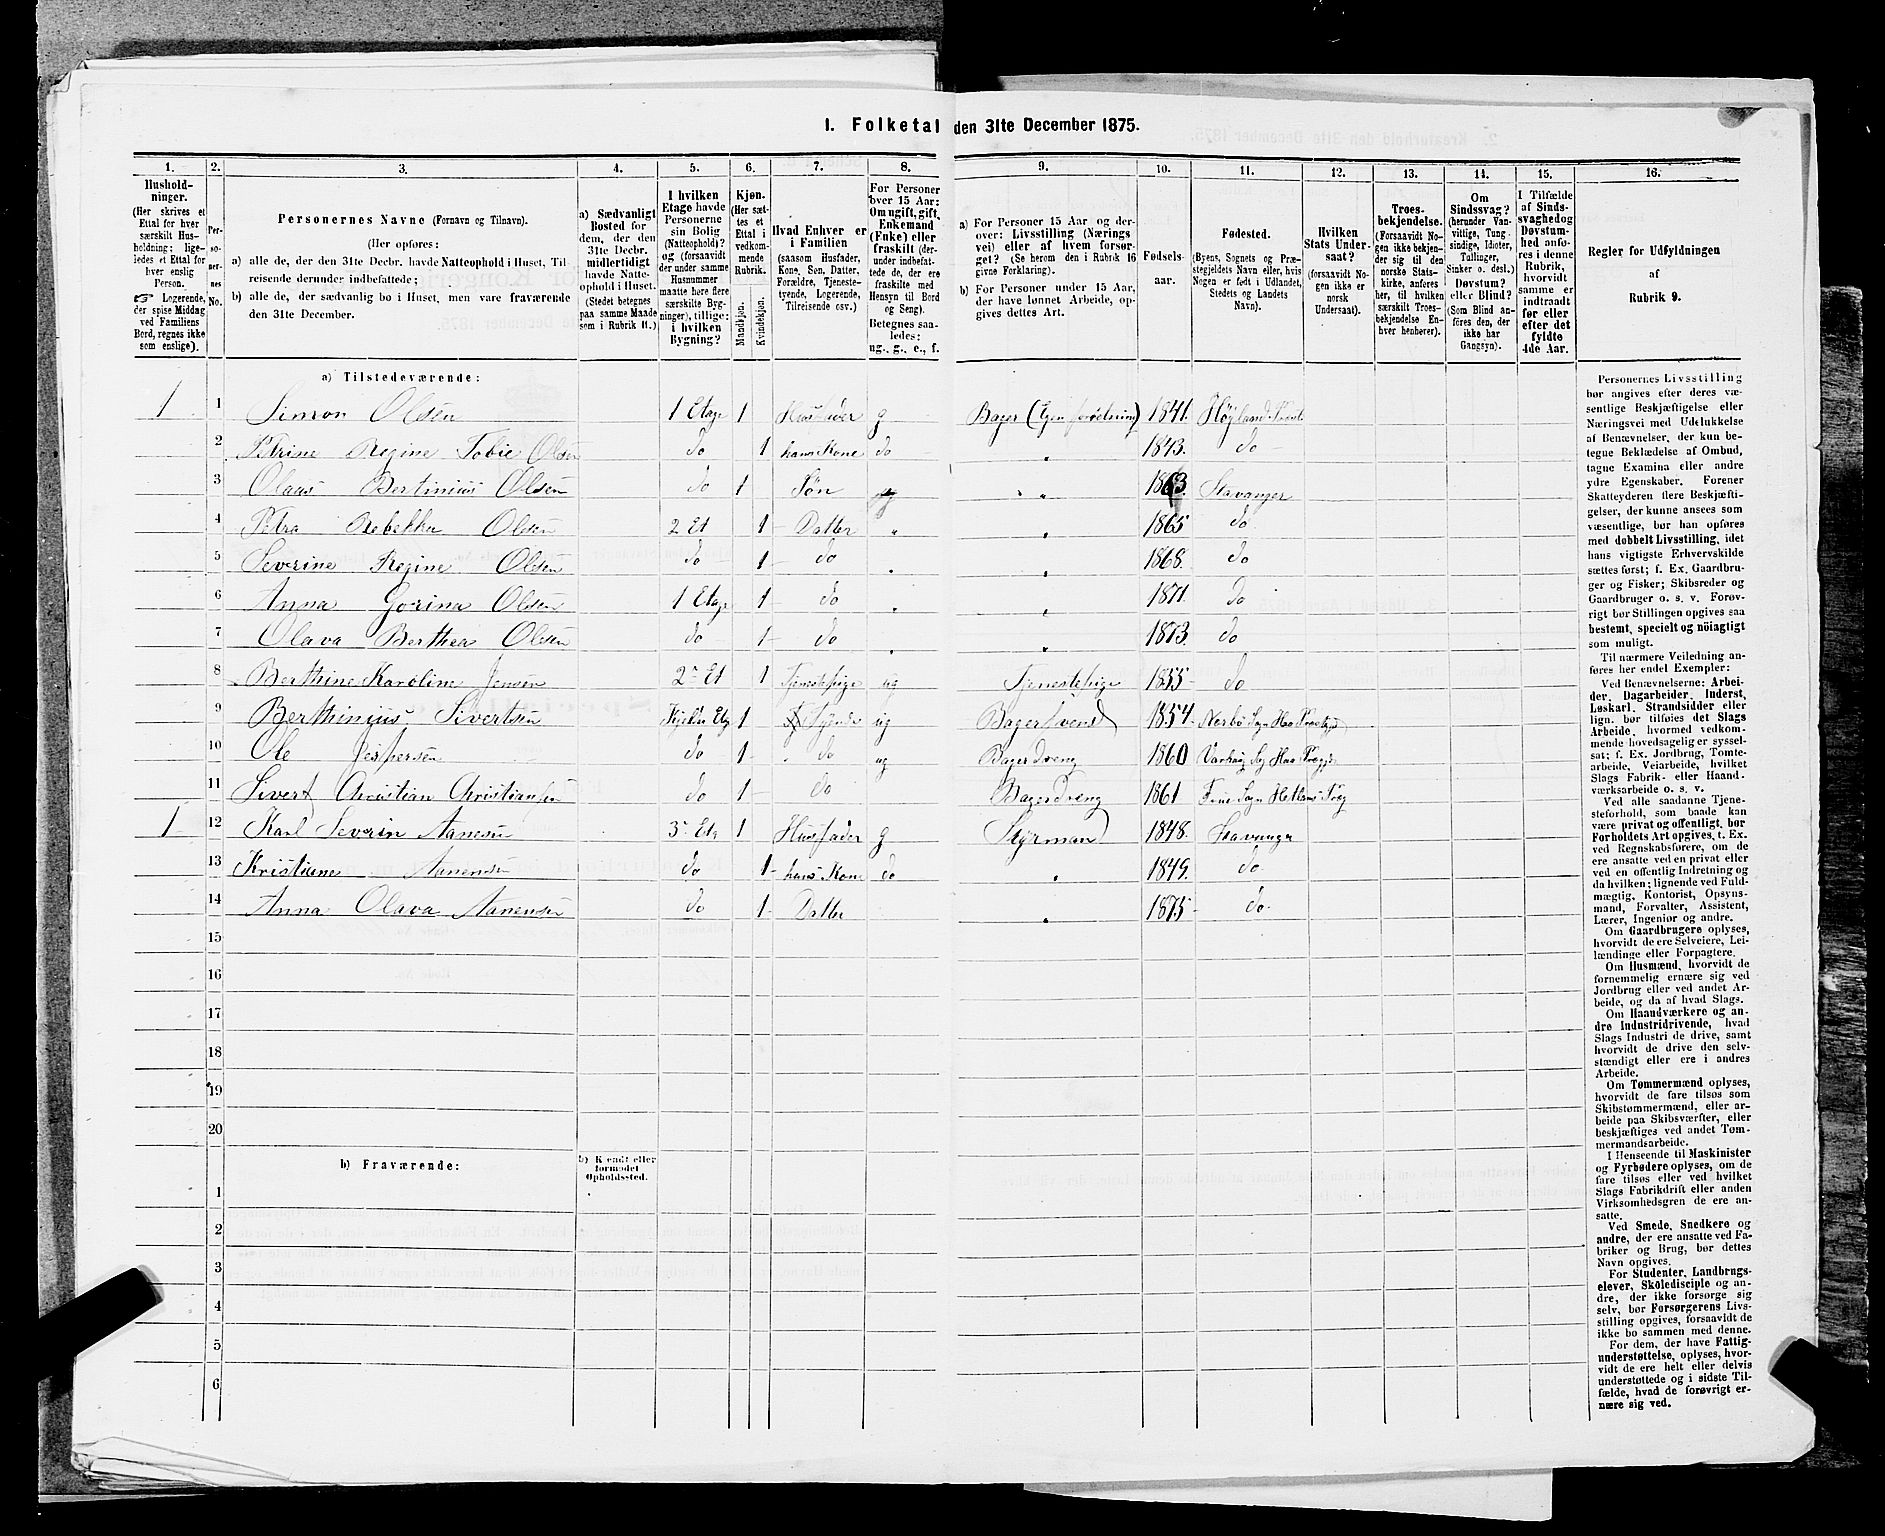 1. Folketal den 31te December 1875.
1. 2. 3. 4. 5. 6. 7. 8. 9. 10. 11. 12. 13. 14. 15. 16.
Hushold-
ninger.
(Her skrives et
Ettal for hver
særskilt Hus-
holdning; lige-
ledes et Ettal for
hver enslig
Person.
☞ Logerende,
der spise Middag
ved Familiens
Bord, regnes ikke
som enslige).
Per-
so-
ner-
nes
No.
Personernes Navne (Fornavn og Tilnavn).
(Her opføres:
a) alle de, der den 31te Decbr. havde Natteophold i Huset, Til-
reisende derunder indbefattede;
b) alle de, der sædvanlig bo i Huset, men vare fraværende
den 31te December.
a) Sædvanligt
Bosted for
dem, der den
31te Decbr.
midlertidigt
havde Natte-
ophold i Huset.
(Stedet betegnes
paa samme Maade
som i Rubrik 11.)
I hvilken
Etage havde
Personerne
sin Bolig
(Natteophold)?
og (forsaavidt
der under samme
Husnummer
maatte høre flere
særskilte Byg-
ninger), tillige:
i hvilken
Bygning?
Kjøn.
(Her sæt-
tes et
Ettal i
vedkom-
mende
Rubrik.
Mandkjøn.
Kvindekjøn.
Hvad Enhver er
i Familien
(saasom Husfader,
Kone, Søn, Datter,
Forældre, Tjeneste-
tyende, Logerende,
Tilreisende osv.)
For Personer
over 15 Aar:
Om ugift, gift,
Enkemand
(Enke) eller
fraskilt (der-
under indbefat-
tede de, der ere
fraskilte med
Hensyn til Bord
og Seng).
Betegnes saa-
ledes:
ug., g., e., f.
a) For Personer 15 Aar og der-
over: Livsstilling (Nærings
vei) eller af hvem forsør-
get? (Se herom den i Rubrik 16
givne Forklaring).
b) For Personer under 15 Aar,
der have lønnet Arbeide, op-
gives dettes Art.
Fødsels-
aar.
Fødested.
(Byens, Sognets og Præ-
stegjeldets Navn eller, hvis
Nogen er født i Udlandet,
Stedets og Landets
Navn).
Hvilken
Stats Under-
saat?
(forsaavidt No-
gen ikke er
norsk
Undersaat).
Troes-
bekjendelse.
(Forsaavidt No-
gen ikke bekjen-
der sig til den
norske Stats-
kirke, anføres
her, til hvilken
særskilt Troes-
bekjendelse En-
hver henhører).
Om
Sindssvag?
(herunder Van-
vittige, Tung-
sindige, Idioter,
Tullinger,
Sinker o. desl.)
Døvstum?
eller Blind?
(Som Blind an-
føres den, der
ikke har
Gangsyn).
I Tilfælde
af Sinds-
svaghed og
Døvstum-
hed anfø-
res i denne
Rubrik,
hvorvidt
samme er
indtraadt
før eller
efter det
fyldte
4de Aar.
Regler for Udfyldningen
af
Rubrik 9.
a) Tilstedeværende:
1 1 Simon Olsen 1 Etage 1 Husfader g Bager (Egen forretning) 1841. Højland
2 Petrine Regine Tobie Olsen do 1 hans Kone do " 1843. do
3 Olaus Bertinius Olsen do 1 Søn " 1863. Stavanger
4 Petra Rebekka Olsen 2 Et 1 Datter " " 1865 do
5 Severine Regine Olsen do 1 do " " 1868. do
6 Anna Gorina Olsen 1 Etage 1 do " " 1871. do
7 Olava Berthea Olsen do 1 do " " 1873. do
8 Berthine Karoline Jensen 2 Et 1 Tjenestepige ug Tjenestepige 1855 do
9 Berthinius Sivertsen 1 ug Bagersvend 1854. Nærbø Sogn Haa
10 Ole Jespersen do 1 do ug Bagerdreng 1860 Varhaug Sg Haa
11 Sivert Christian Christiansen do 1 do Bagerdreng 1861 Sogn Hetlands
1 12 Karl Severin Aanensen 3 Etg 1 Husfader g Styrmand 1848. Stavanger
13 Kristiane Aanensen do 1 hans Kone do " 1849. do
14 Anna Olava Aanensen do 1 Datter " 1875 do
15
16
17
18
19
20
b) Fraværende:
b) Kjendt eller
formodet
Opholdssted.
1
2
3
4
5
6
Personernes Livsstilling
bør angives efter deres væ-
sentlige Beskjæftigelse eller
Næringsvei med Udelukkelse
af Benævnelser, der kun be-
tegne Beklædelse af Ombud,
tagne Examina eller andre
ydre Egenskaber. Forener
Skatteyderen flere Beskjæfti-
gelser, der kunne ansees som
væsentlige, bør han opføres
med dobbelt Livsstilling, idet
hans vigtigste Erhvervskilde
sættes først; f. Ex. Gaardbru-
ger og Fisker; Skibsreder og
Gaardbruger o. s. v. Forøv-
rigt bør Stillingen opgives saa
bestemt, specielt og nöiagtigt
som muligt.
Til nærmere Veiledning an-
føres her endel Exempler:
Ved Benævnelserne: Arbei-
der, Dagarbeider, Inderst,
Løskarl, Strandsidder eller
lign. bør tilføies det Slags
Arbeide, hvormed vedkom-
mende hovedsagelig er syssel-
sat; f. Ex. Jordbrug, Tomte-
arbeide, Veiarbeide, hvilket
Slags Fabrik- eller Haand-
værksarbeide o. s. v.
Ved alle saadanne Tjene-
steforhold, som baade kan
være privat og offentligt, bør
Forholdets Art opgives, t. Ex.
ved Regnskabsførere, om de
ere ansatte ved en privat eller
ved en offentlig Indretning og
da hvilken; lignende ved Fuld-
mægtig, Kontorist, Opsyns-
mand, Forvalter, Assistent,
Lærer, Ingeniør og andre.
Om Gaardbrugere oplyses,
hvorvidt de ere Selveiere, Lei-
lændinge eller Forpagtere.
Om Husmænd, hvorvidt de
fornemmelig ernære sig ved
Jordbrug eller ved andet Ar-
beide, og da af hvad Slags.
Om Haandværkere og an-
dre Industridrivende, hvad
Slags Industri de drive, samt
hvorvidt de drive den selv-
stændigt eller ere i andres
Arbeide.
Om Tømmermænd oplyses,
hvorvidt de fare tilsøs som
Skibstømmermænd, eller ar-
beide paa Skibsværfter, eller
beskjæftiges ved andet Tøm-
mermandsarbeide.
I Henseende til Maskinister
og Fyrbødere oplyses, om de
fare tilsøs eller ved hvilket
Slags Fabrikdrift eller anden
Virksomhedsgren de ere an-
satte.
Ved Smede, Snedkere og
andre, der ere ansatte ved Fa-
briker og Brug, bør dettes
Navn opgives.
For Studenter, Landbrugs-
elever, Skoledisciple og an-
dre, der ikke forsørge sig
selv, bør Forsørgerens Livs-
stilling opgives, forsaavidt de
ikke bo sammen med denne.
For dem, der have Fattig-
understøttelse, oplyses, hvor-
vidt de ere helt eller delvis
understøttede og i sidste Til-
fælde, hvad de forøvrigt er-
nære sig ved.